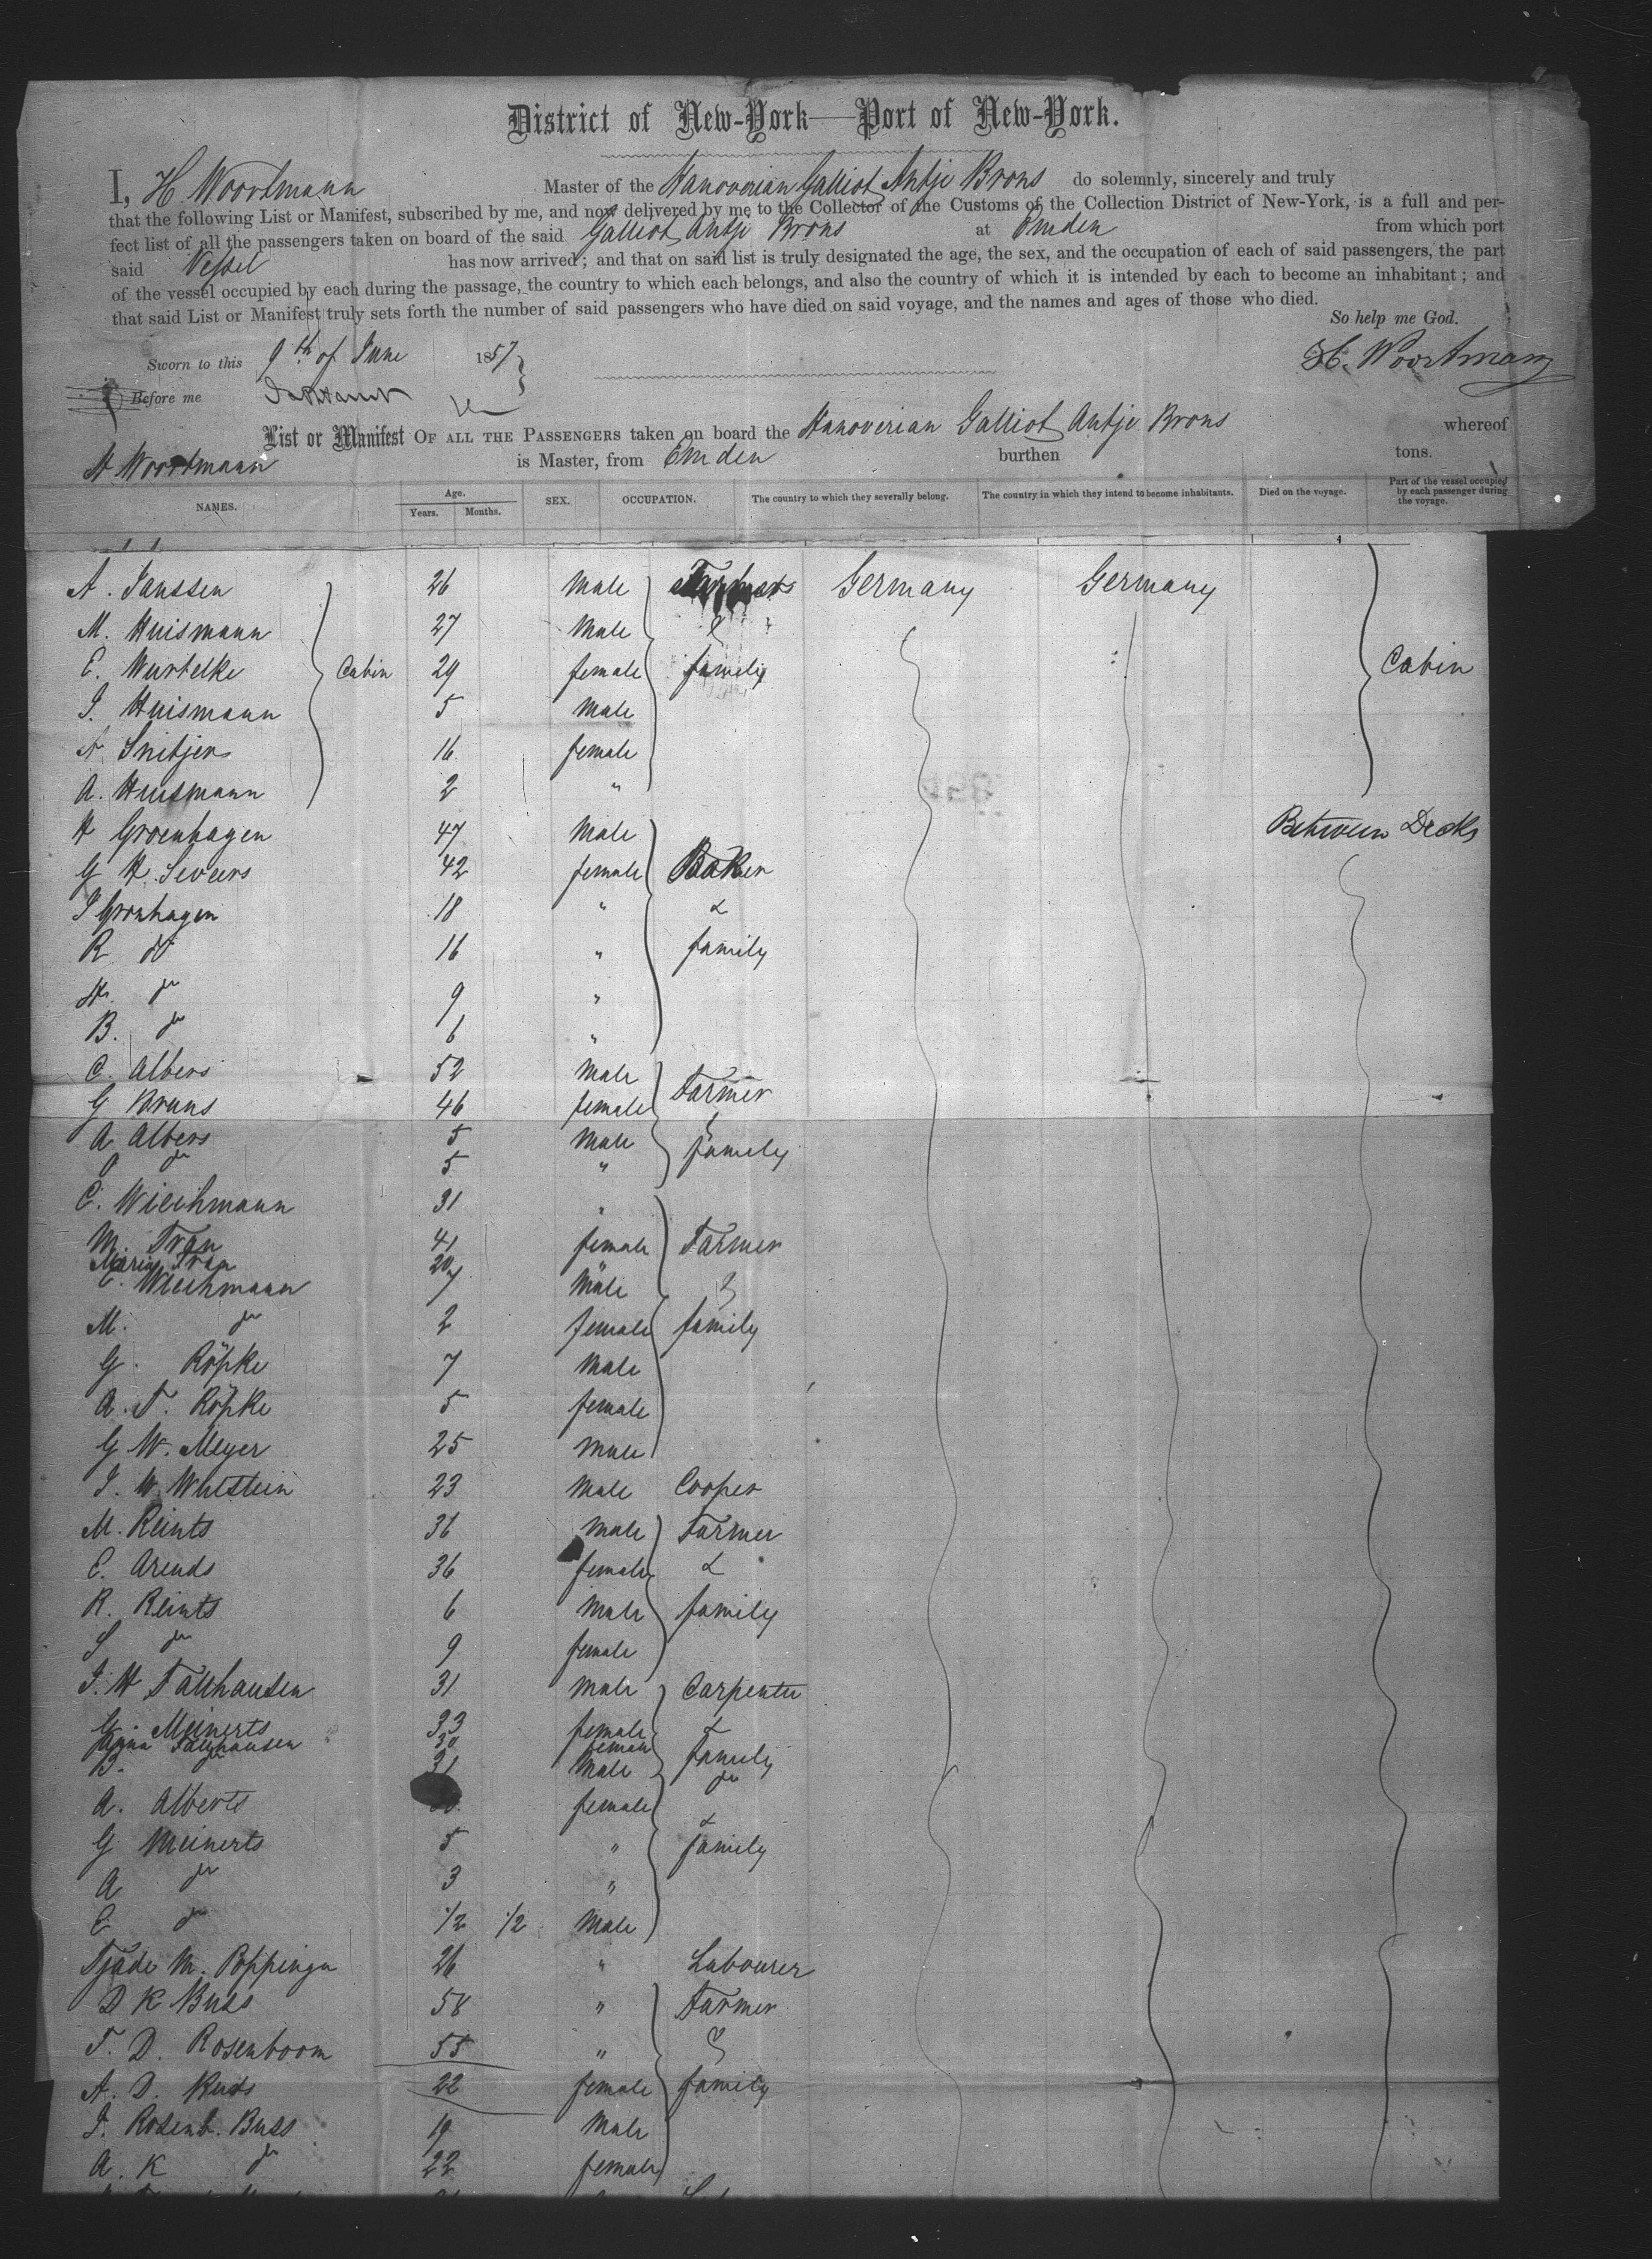 District of New-York—Port of New-York.
I, H Woortmann Master of the Hanoverian Galliot Antje Brons do solemnly, sincerely and truly
that the following List or Manifest, subscribed by me, and now delivered by me to the Collector of the Customs of the Collection District of New-York, is a full and per-
fect list of all the passengers taken on board of the said Galliot Antje Brons at Emden from which port
said Vessel has now arrived; and that on said list is truly designated the age, the sex, and the occupation of each of said passengers, the part
of the vessel occupied by each during the passage, the country to which each belongs, and also the country of which it is intended by each to become an inhabitant; and
that said List or Manifest truly sets forth the number of said passengers who have died on said voyage, and the names and ages of those who died.
So help me God.
Sworn to this 9th of June 1857
H. Woortmann
Before me
List or Manifest OF ALL THE PASSENGERS taken on board the Hanoverian Galliot Antje Brons whereof
H Woortmann is Master, from Emden burthen tons.
NAMES. Age. Years. Months. SEX. OCCUPATION. The country to which they severally belong. The country in which they intend to become inhabitants. Died on the voyage. Part of the vessel occupied by each passenger during the voyage.
A. Janssen 26 Male Germany Germany
M. Huismann 27 Male &
E. Wurtelke Cabin 29 female family Cabin
J. Huismann 5 Male
A Snitjers 16 female
A. Huismann 2 "
H Groenhagen 47 Male Between Decks
G H. Seveers 42 female Baker
J Gronhagen 18 " &
R do 16 " family
H. do 9 "
B. do 6 "
C. Albers 52 Male Farmer
G Bruns 46 female &
A Albers 5 Male family
do 5 "
C. Wiechmann 31 "
M. Tran 41 female Farmer
Maria Tran 20 "
C. Wiechmann 7 Male &
M. do 2 female family
G. Röpke 7 Male
A. T. Röpke 5 female
G. W. Meyer 25 Male
J. W. Whlstein 23 Male Cooper
M. Reints 36 Male Farmer
E. Arends 36 female &
R. Reints 6 Male family
S do 9 female
J. H Falkhausen 31 Male Carpenter
G. Meinerts 33 female &
Falkhausen female family
B. do 31 Male do
A. Alberts female &
G Meinerts 5 " family
A do 3 "
E do 1/2 1/2 Male
Tjade M. Poppinga 26 " Labourer
D K Buss 58 " Farmer
T. D. Rosenboom 55 " &
A. D. Buss 22 female family
J. Rosenb. Buss 19 Male
A. K do 22 female